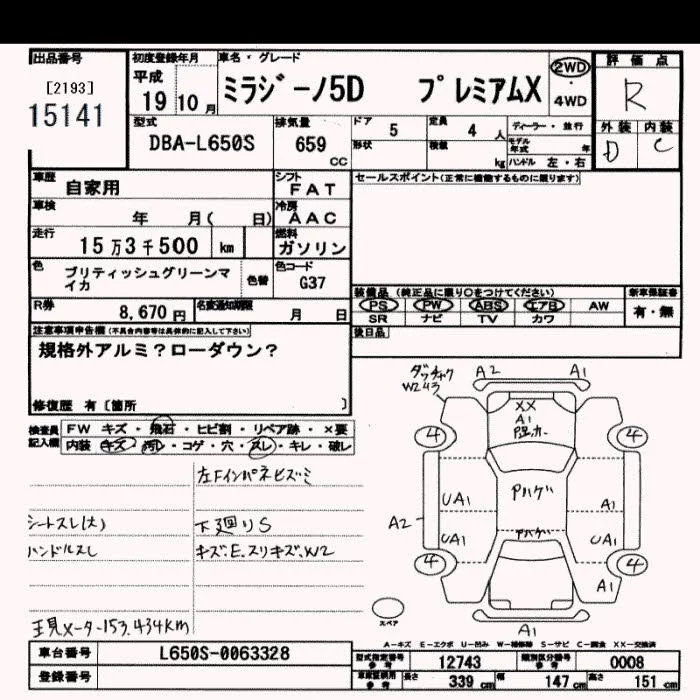 出品番号
[2193]
15141
初度登録年月
平成
19年10月
車名・グレード
ミラジーノ5D プレミアムX
2WD
・
4WD
評価点
R
外装 内装
D C
型式
DBA-L650S
排気量
659
CC
ドア 5
定員 4 人
形状
積載 kg
ディーラー・並行
モデル年式 年
ハンドル 左・右
車歴 自家用
シフト
FAT
セールスポイント(正常に機能するものに限ります)
車検 年 月( 日)
冷房
AAC
走行 15万3千500 km
燃料
ガソリン
色 ブリティッシュグリーンマイカ
色替
色コード
G37
装備品(純正品に限り○をつけてください)
PS PW ABS エアB AW
SR ナビ TV カワ
新車保証書
有・無
R券 8,670円
名変通知期限 月 日
後日品
注意事項申告欄(不具合内容等は具体的に記入して下さい)
規格外アルミ?ローダウン?
修復歴 有〔箇所 〕
検査員記入欄
FW キズ・飛石・ヒビ割・リペア跡・×要
内装 キズ・汚レ・コゲ・穴・スレ・キレ・破レ
左Fインパネヒズミ
シートスレ(大)
下廻りS
ハンドルスレ
キズ、E、スリキズ、W2
メーター153,434KM
W2
A2 A1
XX
A1
4 4
アハゲ
UA1 A1
A2
アハゲ
UA1 UA1
4 4
A1
スペア
A1
A－キズ E－エクボ U－凹み W－補修跡 S－サビ C－腐食 XX－交換済
車台番号 L650S-0063328
型式指定番号 参考 12743
類別区分番号 参考 0008
登録番号
長さ 339 cm 幅 147 cm 高さ 151 cm